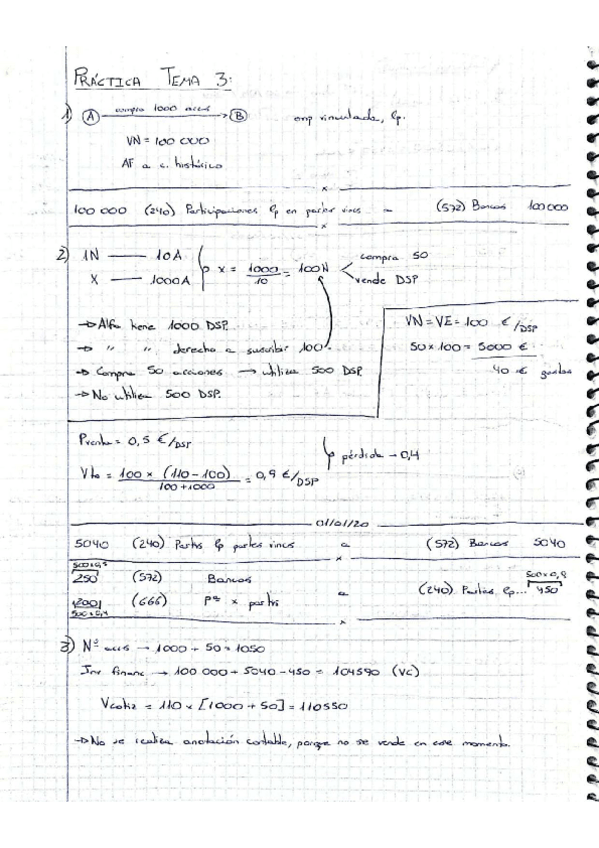 PRÁCTICA TEMA 3:
1) A compra 1000 accs B emp vinculada, lp.
VN = 100 000
AF a c. histórico
100 000 (240) Participaciones lp en partes vincs a (572) Bancos 100 000
2) 1N — 10A
X — 1000A
x = 1000/10 = 100N
compra 50
vende DSP
→ Alfa tiene 1000 DSP.
→ " " derecho a suscribir 100
→ Compra 50 acciones → utiliza 500 DSP.
→ No utiliza 500 DSP.
VN = VE = 100 €/DSP
50 x 100 = 5000 €
40 € gastos
Pventa = 0,5 €/DSP
Vto = 100 x (110 - 100) / 100 + 1000 = 0,9 €/DSP
pérdida → 0,4
01/01/20
5040 (240) Partcs lp partes vincs a (572) Bancos 5040
500 x 0,5
250 (572) Bancos
500 x 0,9
a (240) Partics lp... 450
(200) (666) Pª x partis
500 x 0,4
3) Nº accs → 1000 + 50 = 1050
Inv financ → 100 000 + 5040 - 450 = 104590 (VC)
Vcotiz = 110 x [1000 + 50] = 110550
→ No se realiza anotación contable, porque no se vende en este momento.